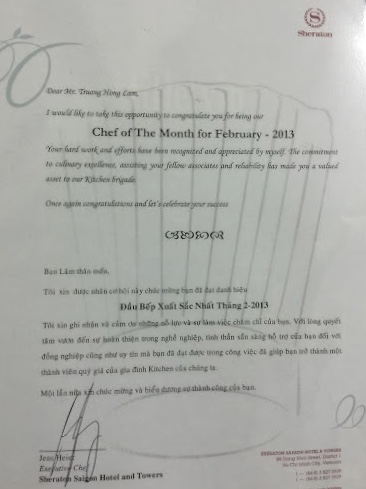 Sheraton
Dear Mr. Truong Hong Lam,
I would like to take this opportunity to congratulate you for being our
Chef of The Month for February - 2013
Your hard work and efforts have been recognized and appreciated by myself. The commitment
to culinary excellence, assisting your fellow associates and reliability has made you a valued
asset to our Kitchen brigade.
Once again congratulations and let's celebrate your success
Bạn Lâm thân mến,
Tôi xin được nhân cơ hội này chúc mừng bạn đã đạt danh hiệu
Đầu Bếp Xuất Sắc Nhất Tháng 2-2013
Tôi xin ghi nhận và cảm ơn những nỗ lực và sự làm việc chăm chỉ của bạn. Với lòng quyết
tâm vươn đến sự hoàn thiện trong nghề nghiệp, tinh thần sẵn sàng hỗ trợ của bạn đối với
đồng nghiệp cũng như uy tín mà bạn đã đạt được trong công việc đã giúp bạn trở thành một
thành viên quý giá của gia đình Kitchen của chúng ta.
Một lần nữa xin chúc mừng và biểu dương sự thành công của bạn.
Executive Chef
Sheraton Saigon Hotel and Towers
SHERATON SAIGON HOTEL & TOWERS
88 Dong Khoi Street, District 1
Ho Chi Minh City, Vietnam